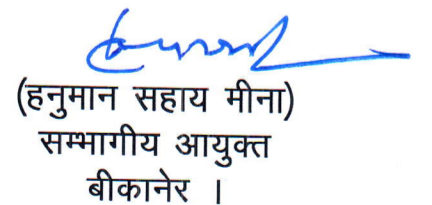 (हनुमान सहाय मीना)
सम्भागीय आयुक्त
बीकानेर ।